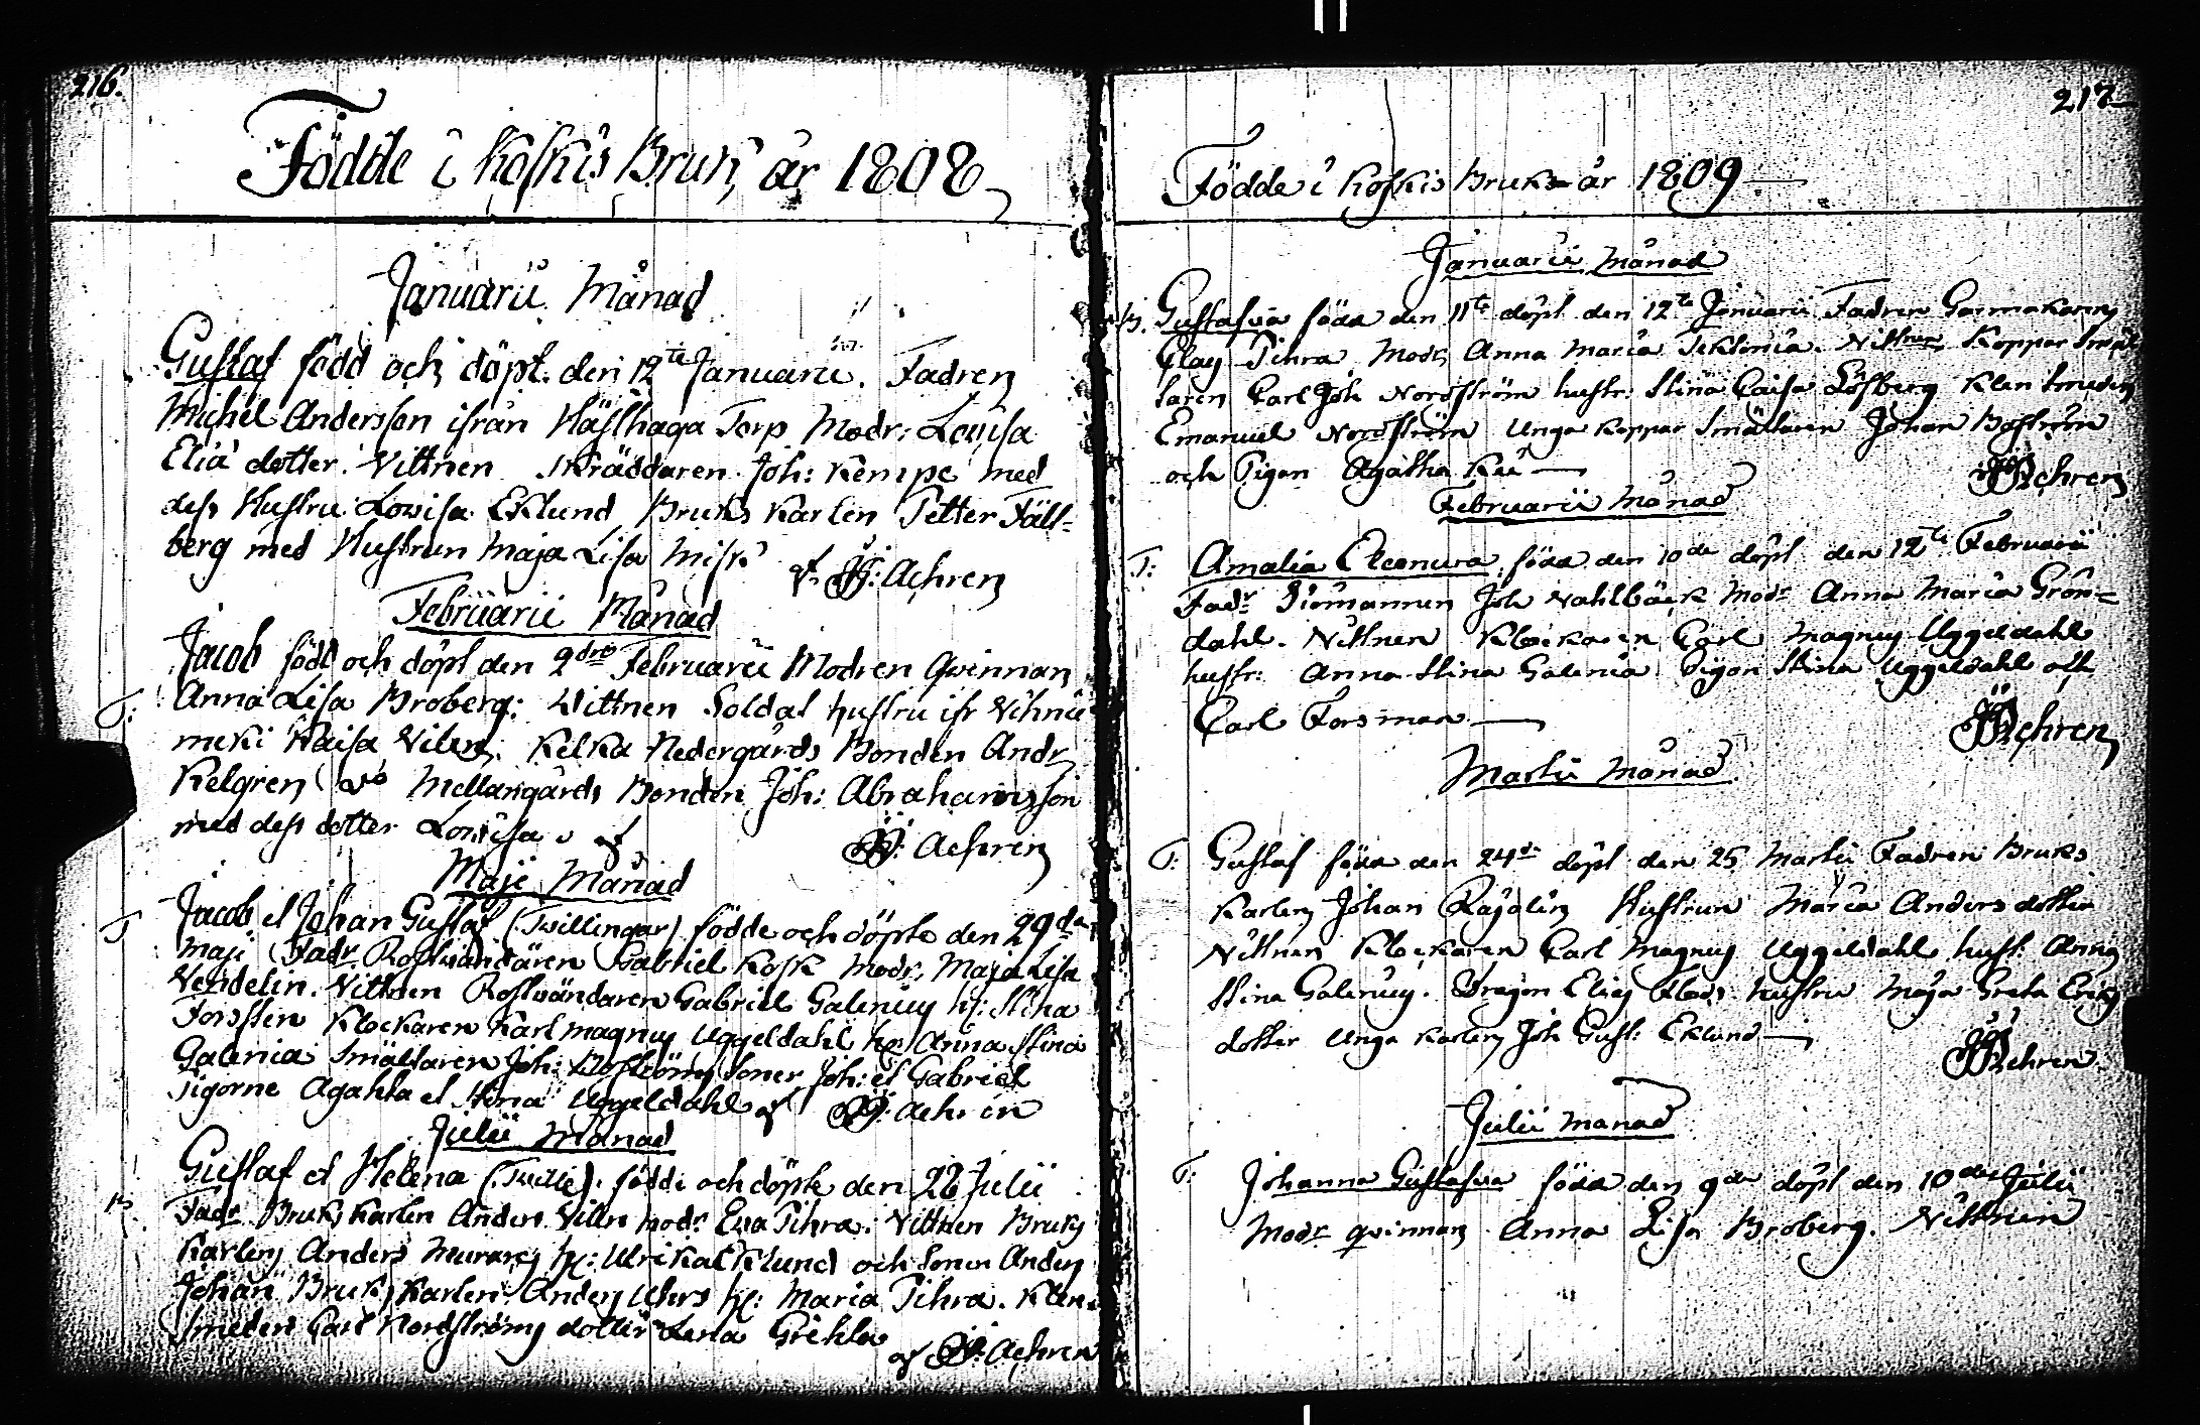 216.
Födde i Koskis Bruk, år 1808
Januarii Månad
Gustaf född och döpt den 12te Januarii. Fadren
Michel Andersson ifrån Hästhaga Torp Modr: Lovisa
Elia dotter. Vittnen Skräddaren Joh: Kempe med
dess Hustru Lovisa Eklund Bruks Karlen Petter Fäll=
berg med Hustrun Maja Lisa
af JH: Achren
Februarii Månad
Jacob född och döpt den 2dre Februarii Modren Qvinnan
T: Anna Lisa Broberg: Wittnen Soldat hustru ifr Vihnie
meki Kaisa Vilen. Kelka Nedergårds Bonden Andr
Kelgren do Mellangårds Bonden Joh: Abrahamsson
med dess dotter Lovisa af
JH: Achren
Maji Månad
T Jacob et Johan Gustaf (Twillingar) födde och döpte den 29de
Maji Fadr Rostvändaren Gabriel Kosk Modr, Maja Lisa
Vendelin. Vittnen Rostvändaren Gabriel Galenius h: Stina
Forssten Klockaren Karl Magnus Uggeldahl h: Anna Stina
Galenia Smältaren Joh: Boströms Söner Joh: et Gabriel
Pigorne Agahta et Stina Uggeldahl af JH: Achren
Julii Månad
Gustaf et Helena (Twill:) födde och döpte den 28 Julii
B Fadr Bruks Karlen Anders Villn Modr Eva Pihra. Vittnen Bruks
Karlen Anders h: Ulrika Eklund och Sonen Anders
Johan Bruks Karlen Anders h: Maria Pihra. Klen=
Smeden Carl Nordströms dotter Lena Grehta
af JH: Achren
217
Födde i Koskis Bruk år 1809
Januarii Månad
B. Gustafva föda den 11te döpt den 12te Januarii Fadren Garmakaren
Clas Pihra Modr Anna Maria Tektonia. Vittnen Koppar Smäl
taren Carl Joh Nordström hustr: Stina Caisa Löfberg Klen Smeden
Emanuel Nordström Unga Koppar Smältaren Johan Boström
och Pigan Agatha
JHAchren
Februarii Månad
T: Amalia Eleonora föda den 10de döpt den 12te Februarii
Fadr Joh Vahlbäck Modr Anna Maria Grön=
dahl. Vittnen Klockaren Carl Magnus Uggeldahl
hustr: Anna Stina Galenia Pigan Stina Uggeldahl och
Carl Forsman
JHAchren
Martii Månad
T: Gustaf föda den 24de döpt den 25 Martii Fadren Bruks
Karlen Johan Hustrun Maria Anders dotter
Vittnen Klockaren Carl Magnus Uggeldahl hust: Anna
Stina Galenius. Dragon Elias hustru Maja Greta Erics
dotter Unga Karlen Joh Gust: Eklund
JHAchren
Julii Månad
T: Johanna Gustafva föda den 9de döpt den 10de Julii
Modr Qvinnan Anna Lisa Broberg. Vittnen